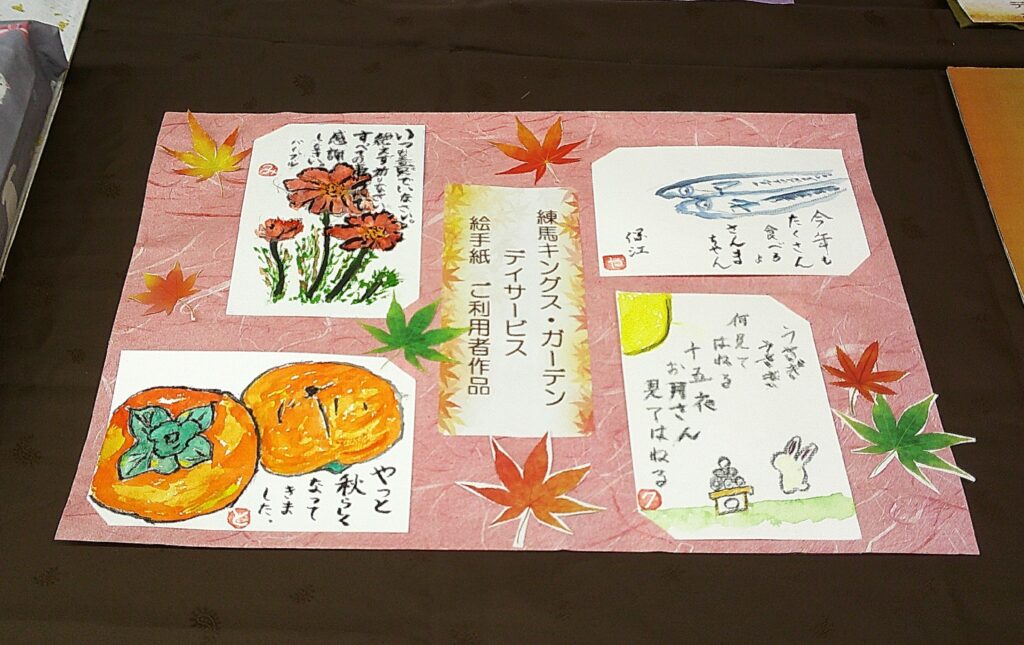 いつも喜んでいなさい。
絶えず祈りなさい
感謝
しなさい。
バイブル
練馬キングス・ガーデン
デイサービス
絵手紙 ご利用者作品
今年も
たくさん
食べるよ
さんま
ちゃん
やっと
秋らしく
なって
きま
した。
うさぎ
うさぎ
何見て
はねる
十五夜
お月さん
見てはねる